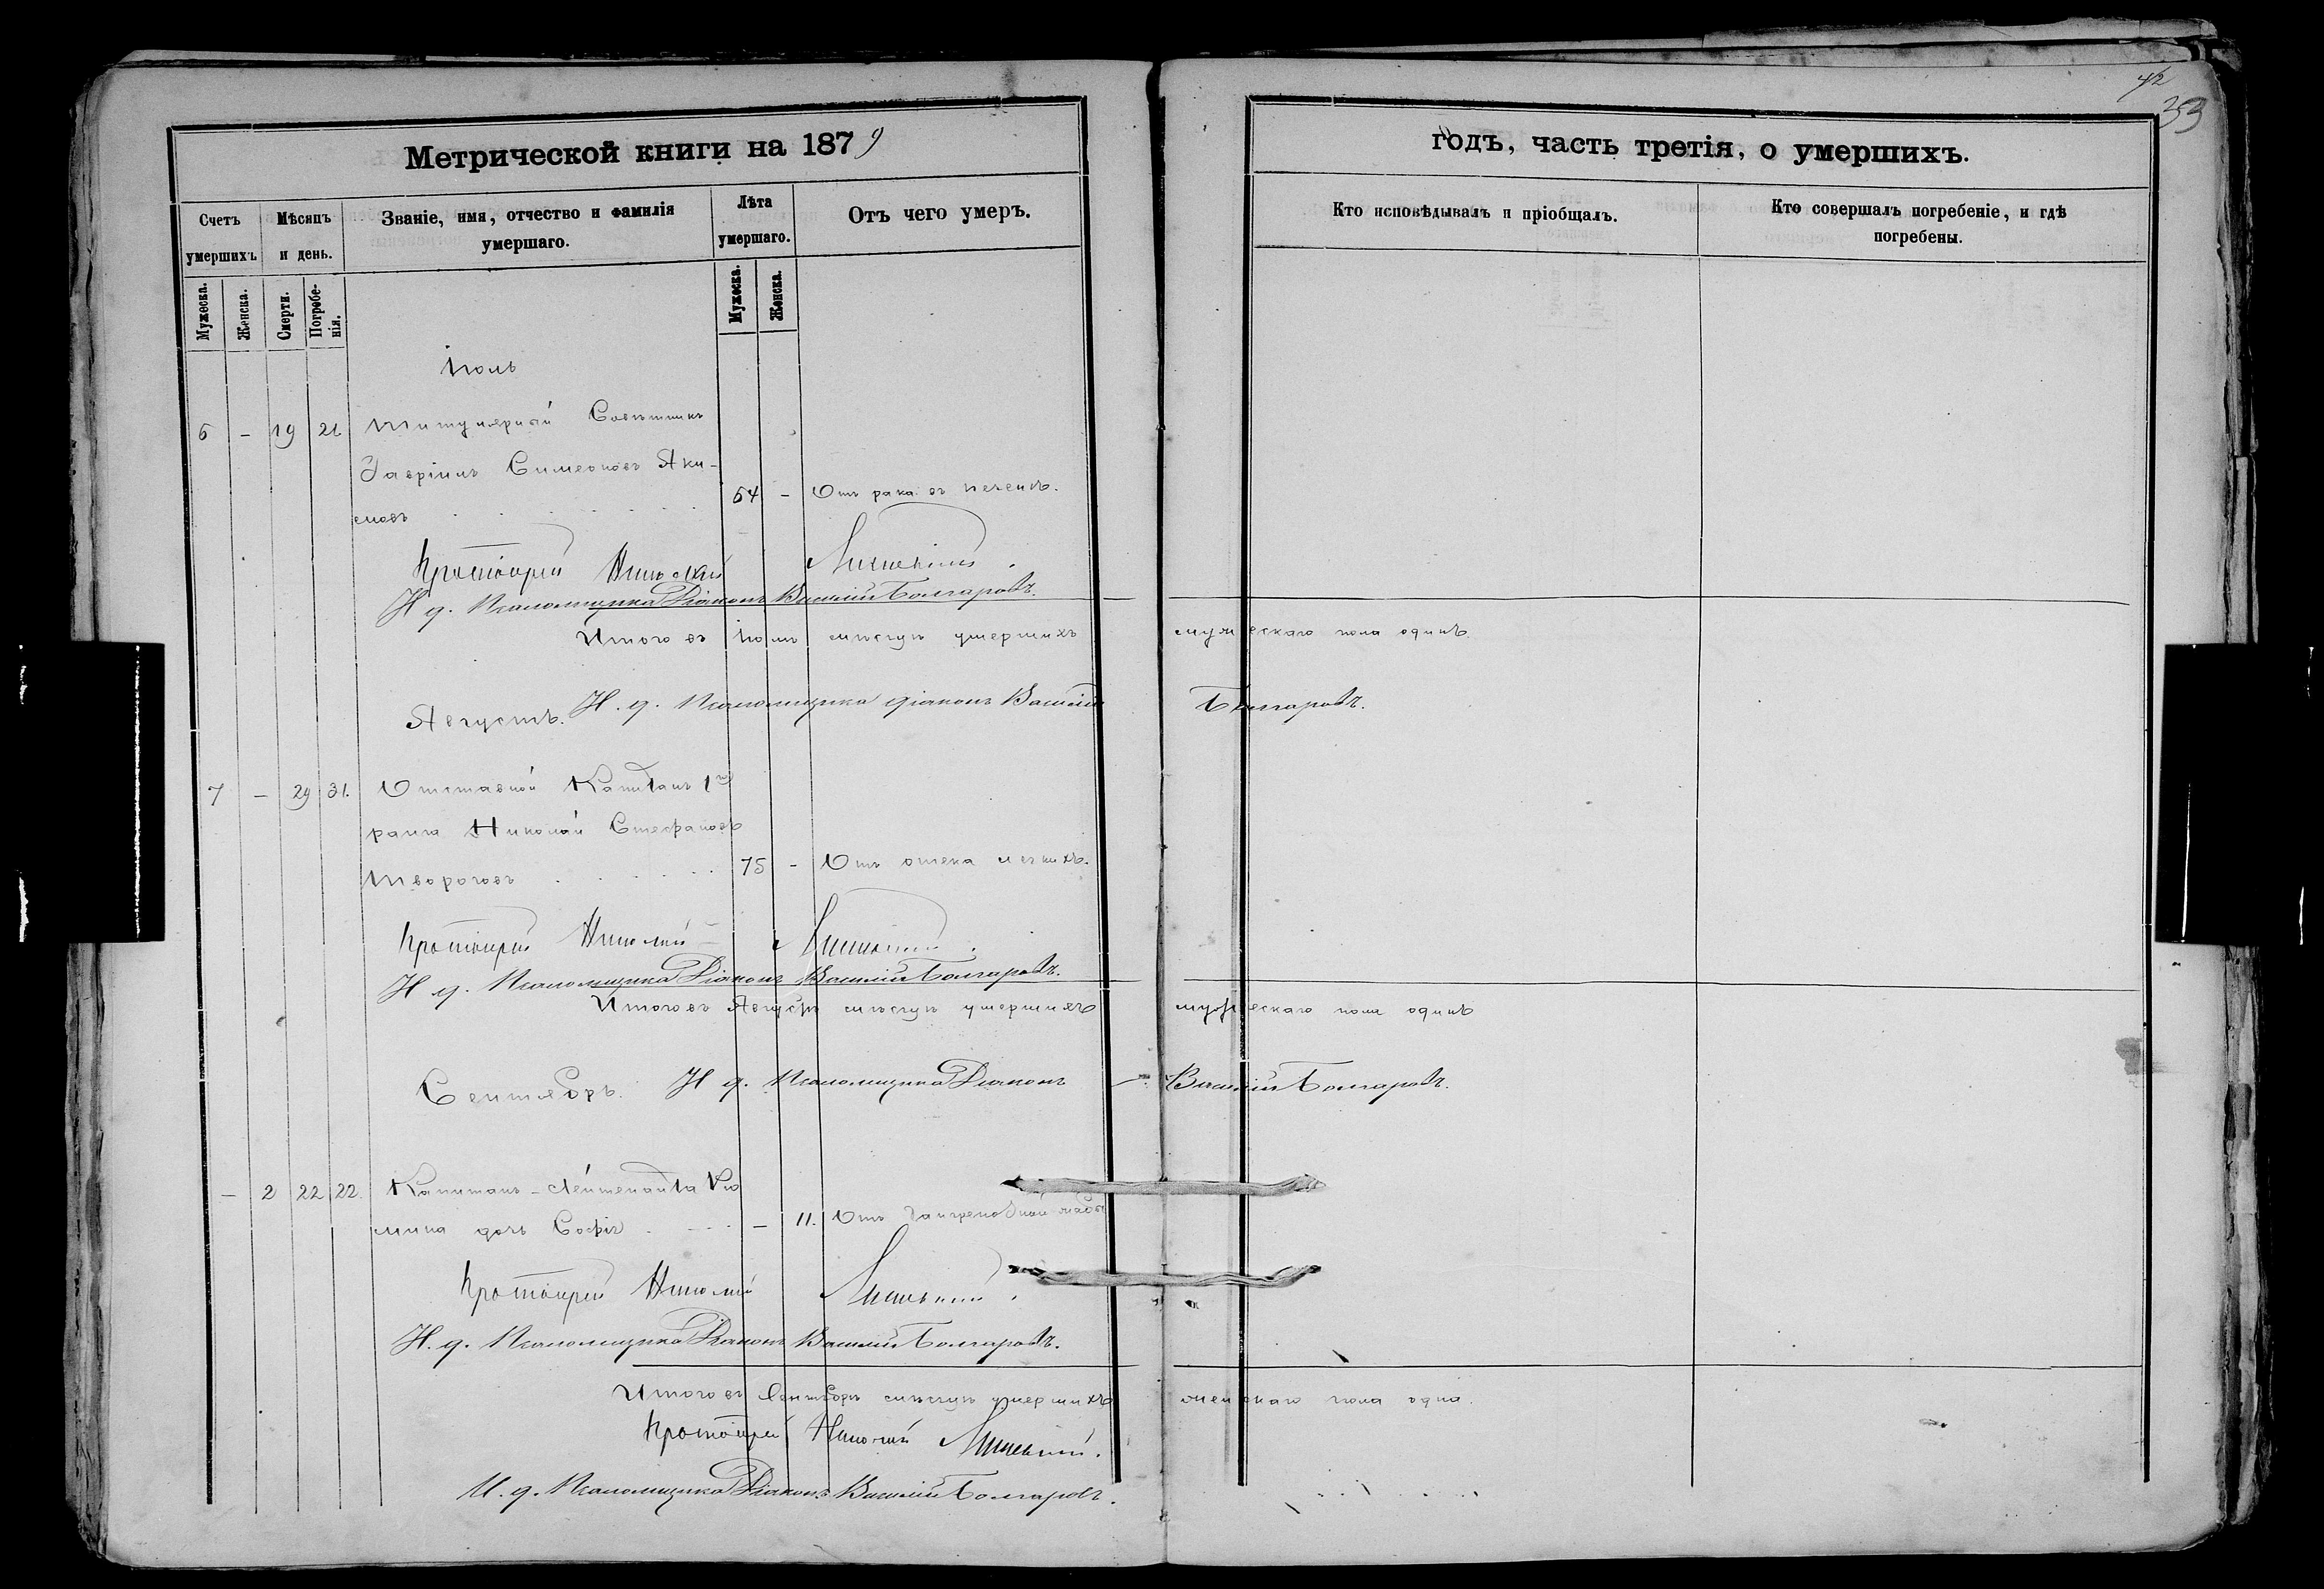 42
33
Метрической книги на 1879
годъ, часть третія, о умершихъ.
Счетъ умершихъ
Мѣсяцъ и день.
Званіе, имя, отчество и фамилія умершаго.
Лѣта умершаго.
Отъ чего умеръ.
Кто исповѣдывалъ и пріобщалъ.
Кто совершалъ погребеніе, и гдѣ погребены.
Мужеска.
Женска.
Смерти.
Погребе-
нія.
Мужеска.
Женска.
Іюль
6 - 19 21 Титулярный Совѣтникъ
Гавріилъ Симеоновъ Яки-
мовъ 64 - Отъ рака въ печени.
Протоіерей Николай
И. д. Псаломщика Діаконъ Василій Болгаровъ.
Итого въ Іюлѣ мѣсяцѣ умершихъ мужескаго пола одинъ.
И. д. Псаломщика діаконъ Василій Болгаровъ.
Августъ.
7 - 29 31. Отставной Капитанъ 1го
ранга Николай Стефановъ
Твороговъ 75 - Отъ отека легкихъ.
Протоіерей Николай
И. д. Псаломщика Діаконъ Василій Болгаровъ.
Итого въ Августѣ мѣсяцѣ умершихъ мужескаго пола одинъ
Сентябрь. И. д. Псаломщика Діаконъ Василій Болгаровъ.
- 2 22 22. Капитанъ-Лейтенанта
дочь Софія - 11. Отъ гангренозной жабы
Протоіерей Николай
И. д. Псаломщика Діаконъ Василій Болгаровъ.
Итого въ Сентябрѣ мѣсяцѣ умершихъ женскаго пола одна.
Протоіерей Николай
И. д. Псаломщика Діаконъ Василій Болгаровъ.